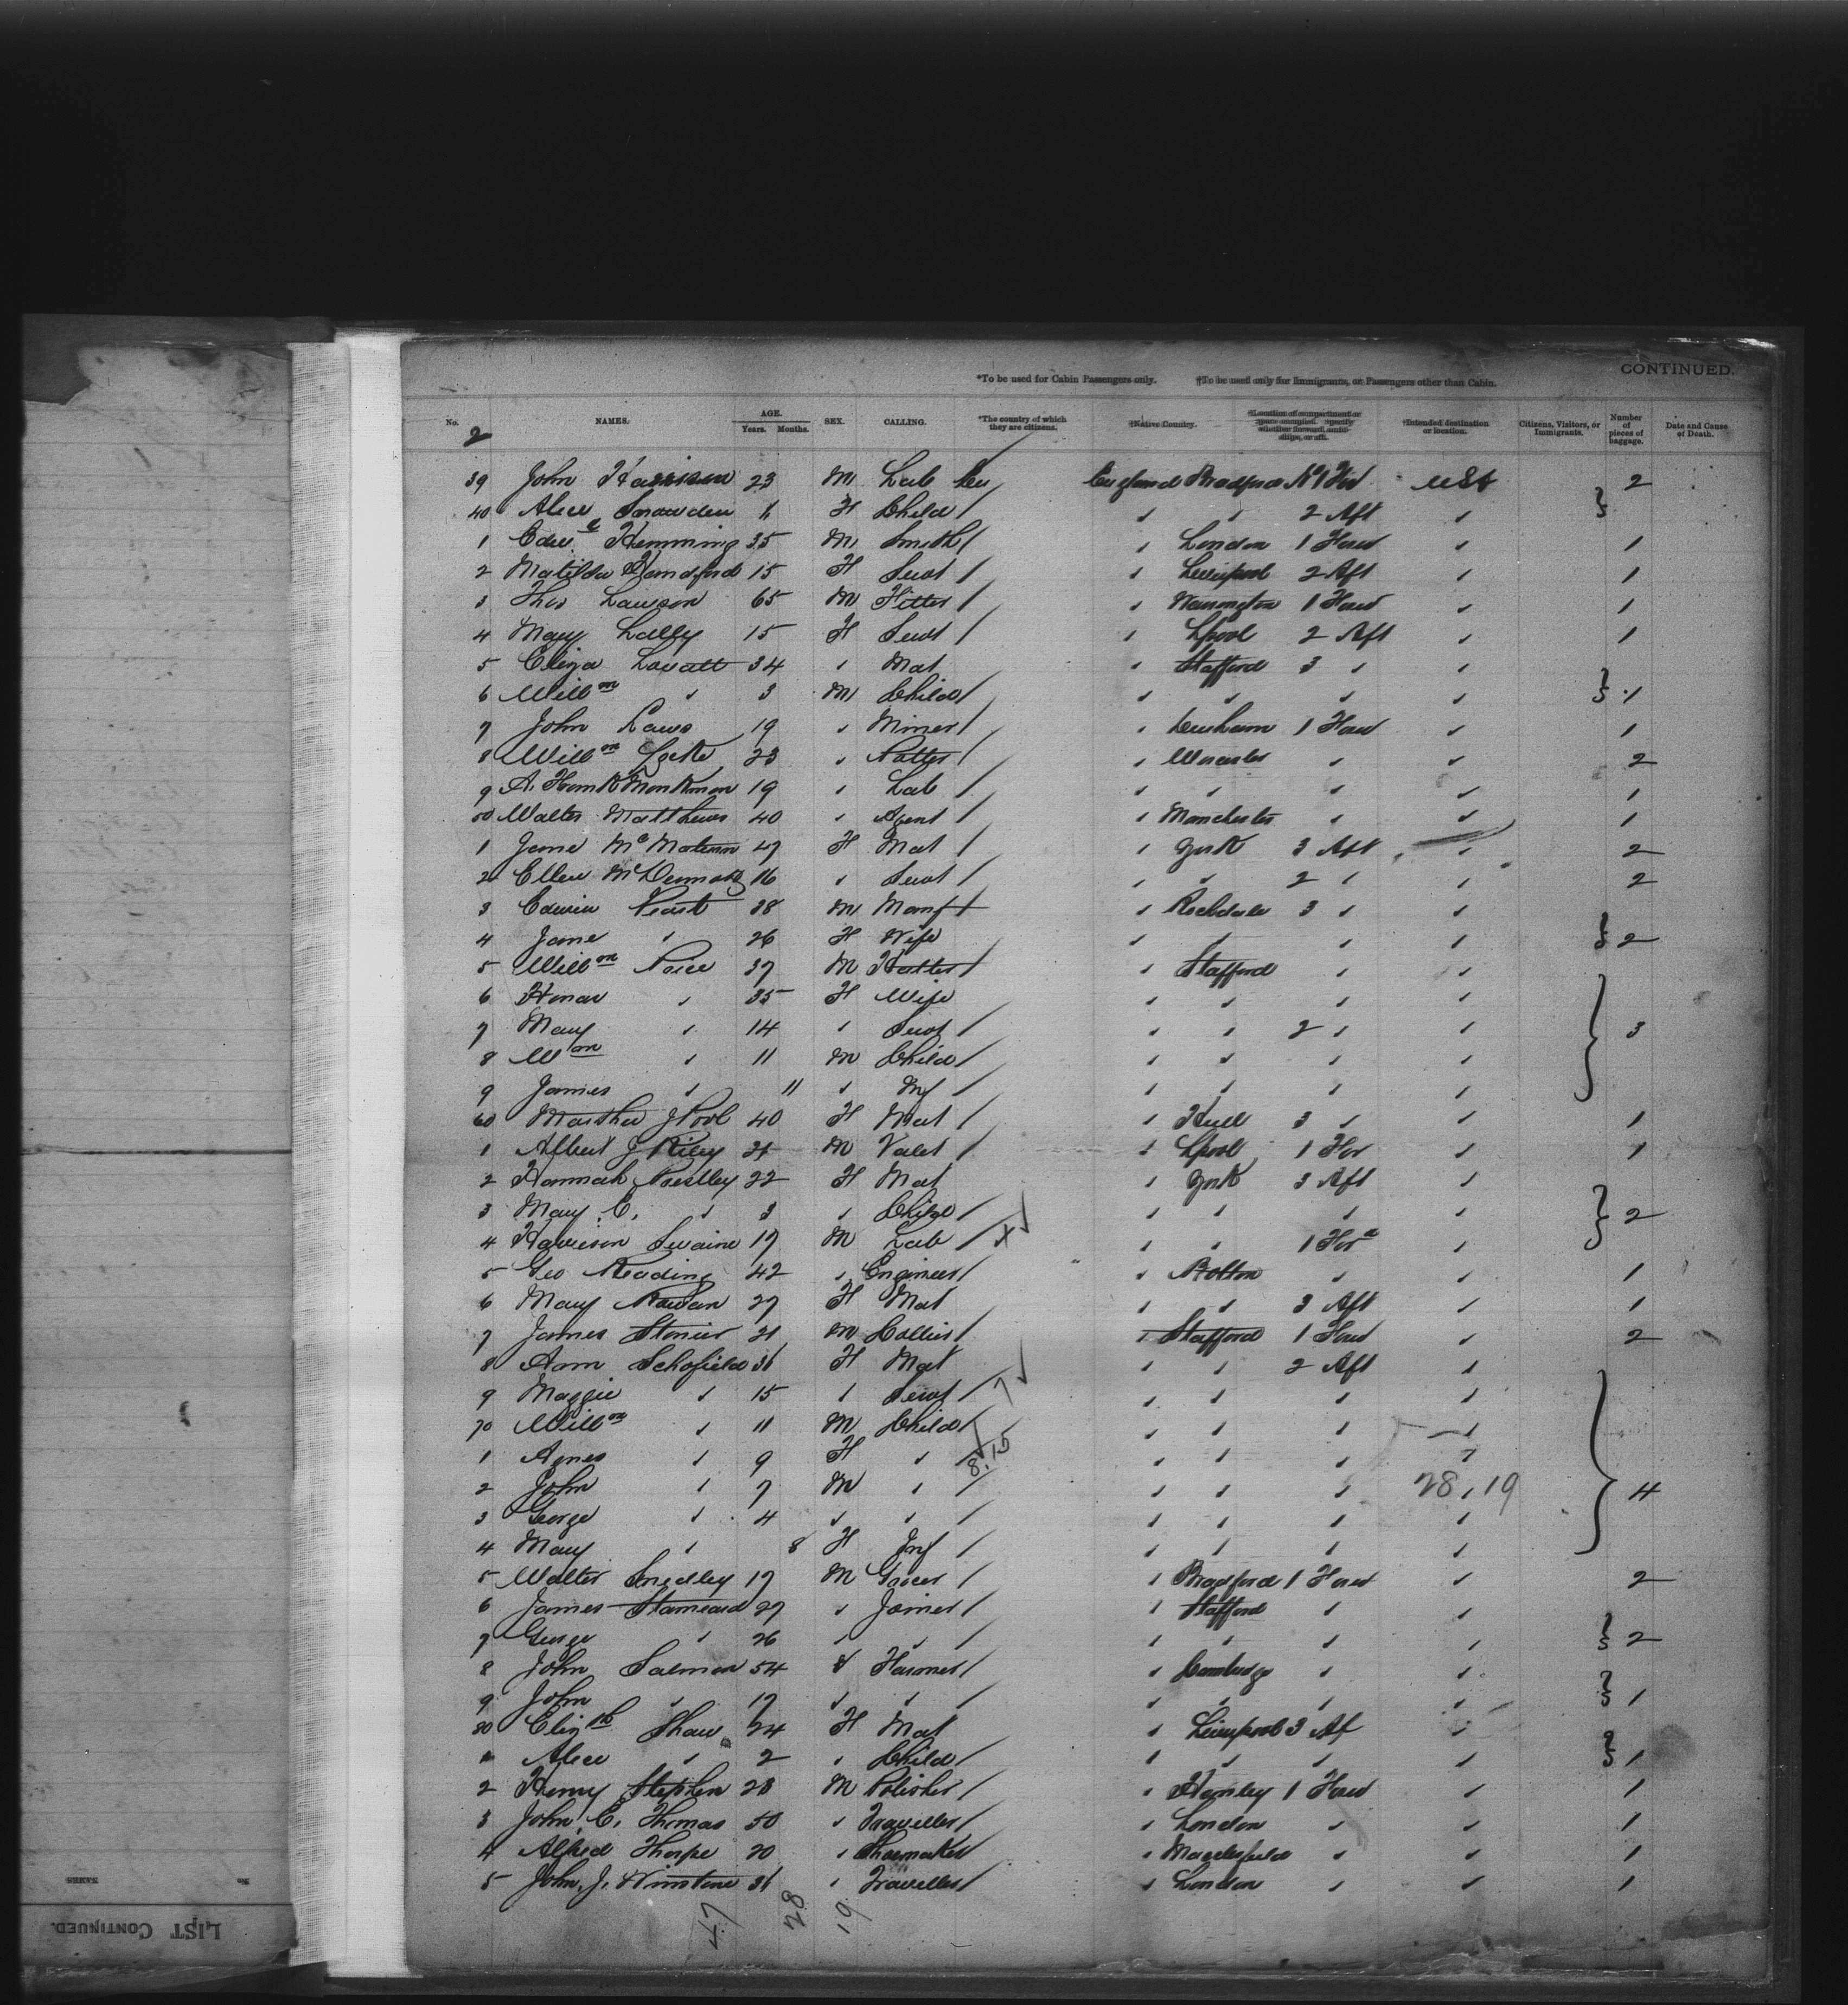 CONTINUED.
*To be used for Cabin Passengers only. †To be used only for Immigrants, or Passengers other than Cabin.
No. NAMES. AGE. Years. Months. SEX. CALLING. *The country of which they are citizens. †Native Country. †Location of compartment or space occupied. specify whether forward, amidships, or aft. †Intended destination or location. Citizens, Visitors, or Immigrants. Number of pieces of baggage. Date and Cause of Death.
2
39 John Harrison 23 M Lab England Bradford No 1 For USA 2
40 Alice 6 F Child / " " 2 Aft "
1 Edwd Hemming 35 M Smith / " London 1 Forwd " 1
2 Matilda Handford 15 F Servt / " Liverpool 2 Aft " 1
3 Thos Lawson 65 M Fitter / " Warrington 1 Forwd " 1
4 Mary Lally 15 F Servt / " Lpool 2 Aft " 1
5 Eliza Lovatt 34 " Mat " Stafford 3 " "
6 Willm " 3 M Child / " " " " 1
7 John Laws 19 " Miner / " Durham 1 Forwd " 1
8 Willm Locke 23 " Potter / " Worcester " " 2
9 A. Monkman 19 " Lab / " " " " 1
50 Walter Matthews 40 " Agent / " Manchester " " 1
1 Jane 47 F Mat / " York 3 Aft " 2
2 Ellen McDermott 16 " Servt / " " 2 " " 2
3 Edwin 38 M Manf / " Rochdale 3 " "
4 Jane " 26 F Wife " " " " 2
5 Willm Price 37 M Hatter / " Stafford " "
6 Honor " 35 F Wife " " " "
7 Mary " 14 " Servt / " " 2 " " 3
8 Wm " 11 M Child / " " " "
9 James " 11 " Inf / " " " "
60 Martha J Pool 40 F Mat / " Hull 3 " " 1
1 Albert J Riley 21 M Valet / " Lpool 1 For " 1
2 Hannah Priestley 22 F Mat " York 3 Aft "
3 Mary E. " 3 " Child / " " " " 2
4 Harrison Swaine 17 M Lab / " " 1 Ford "
5 Geo Reading 42 " Engineer / " Bolton " " 1
6 Mary 27 F Mat " " 3 Aft " 1
7 James Stonier 21 M Collier / " Stafford 1 Forwd " 2
8 Ann Schofield 36 F Mat " " 2 Aft "
9 Maggie " 15 " Servt / " " " "
70 Willm " 11 M Child / " " " "
1 Agnes " 9 F " / 8.15 " " " "
2 John " 7 M " / " " " 28, 19 4
3 George " 4 " " / " " " "
4 Mary " 8 F Inf / " " " "
5 Walter Smedley 17 M Grocer / " Bradford 1 Forwd " 2
6 James 27 " Joiner / " Stafford " "
7 George " 26 " " / " " " " 2
8 John Salmon 54 " Farmer / " Cambridge " "
9 John " 17 " " / " " " " 1
80 Elizth Shaw 24 F Mat " Liverpool 3 Af "
1 Alice " 2 " Child / " " " " 1
2 Henry Stephen 23 M Polisher / " Hanley 1 Forwd " 1
3 John E. Thomas 50 " Traveller / " London " " 1
4 Alfred Thorpe 20 " Shoemaker " Macclesfield " " 1
5 John J. Winstone 31 " Traveller / " London " " 1
47 28 19
No. NAMES
LIST CONTINUED.